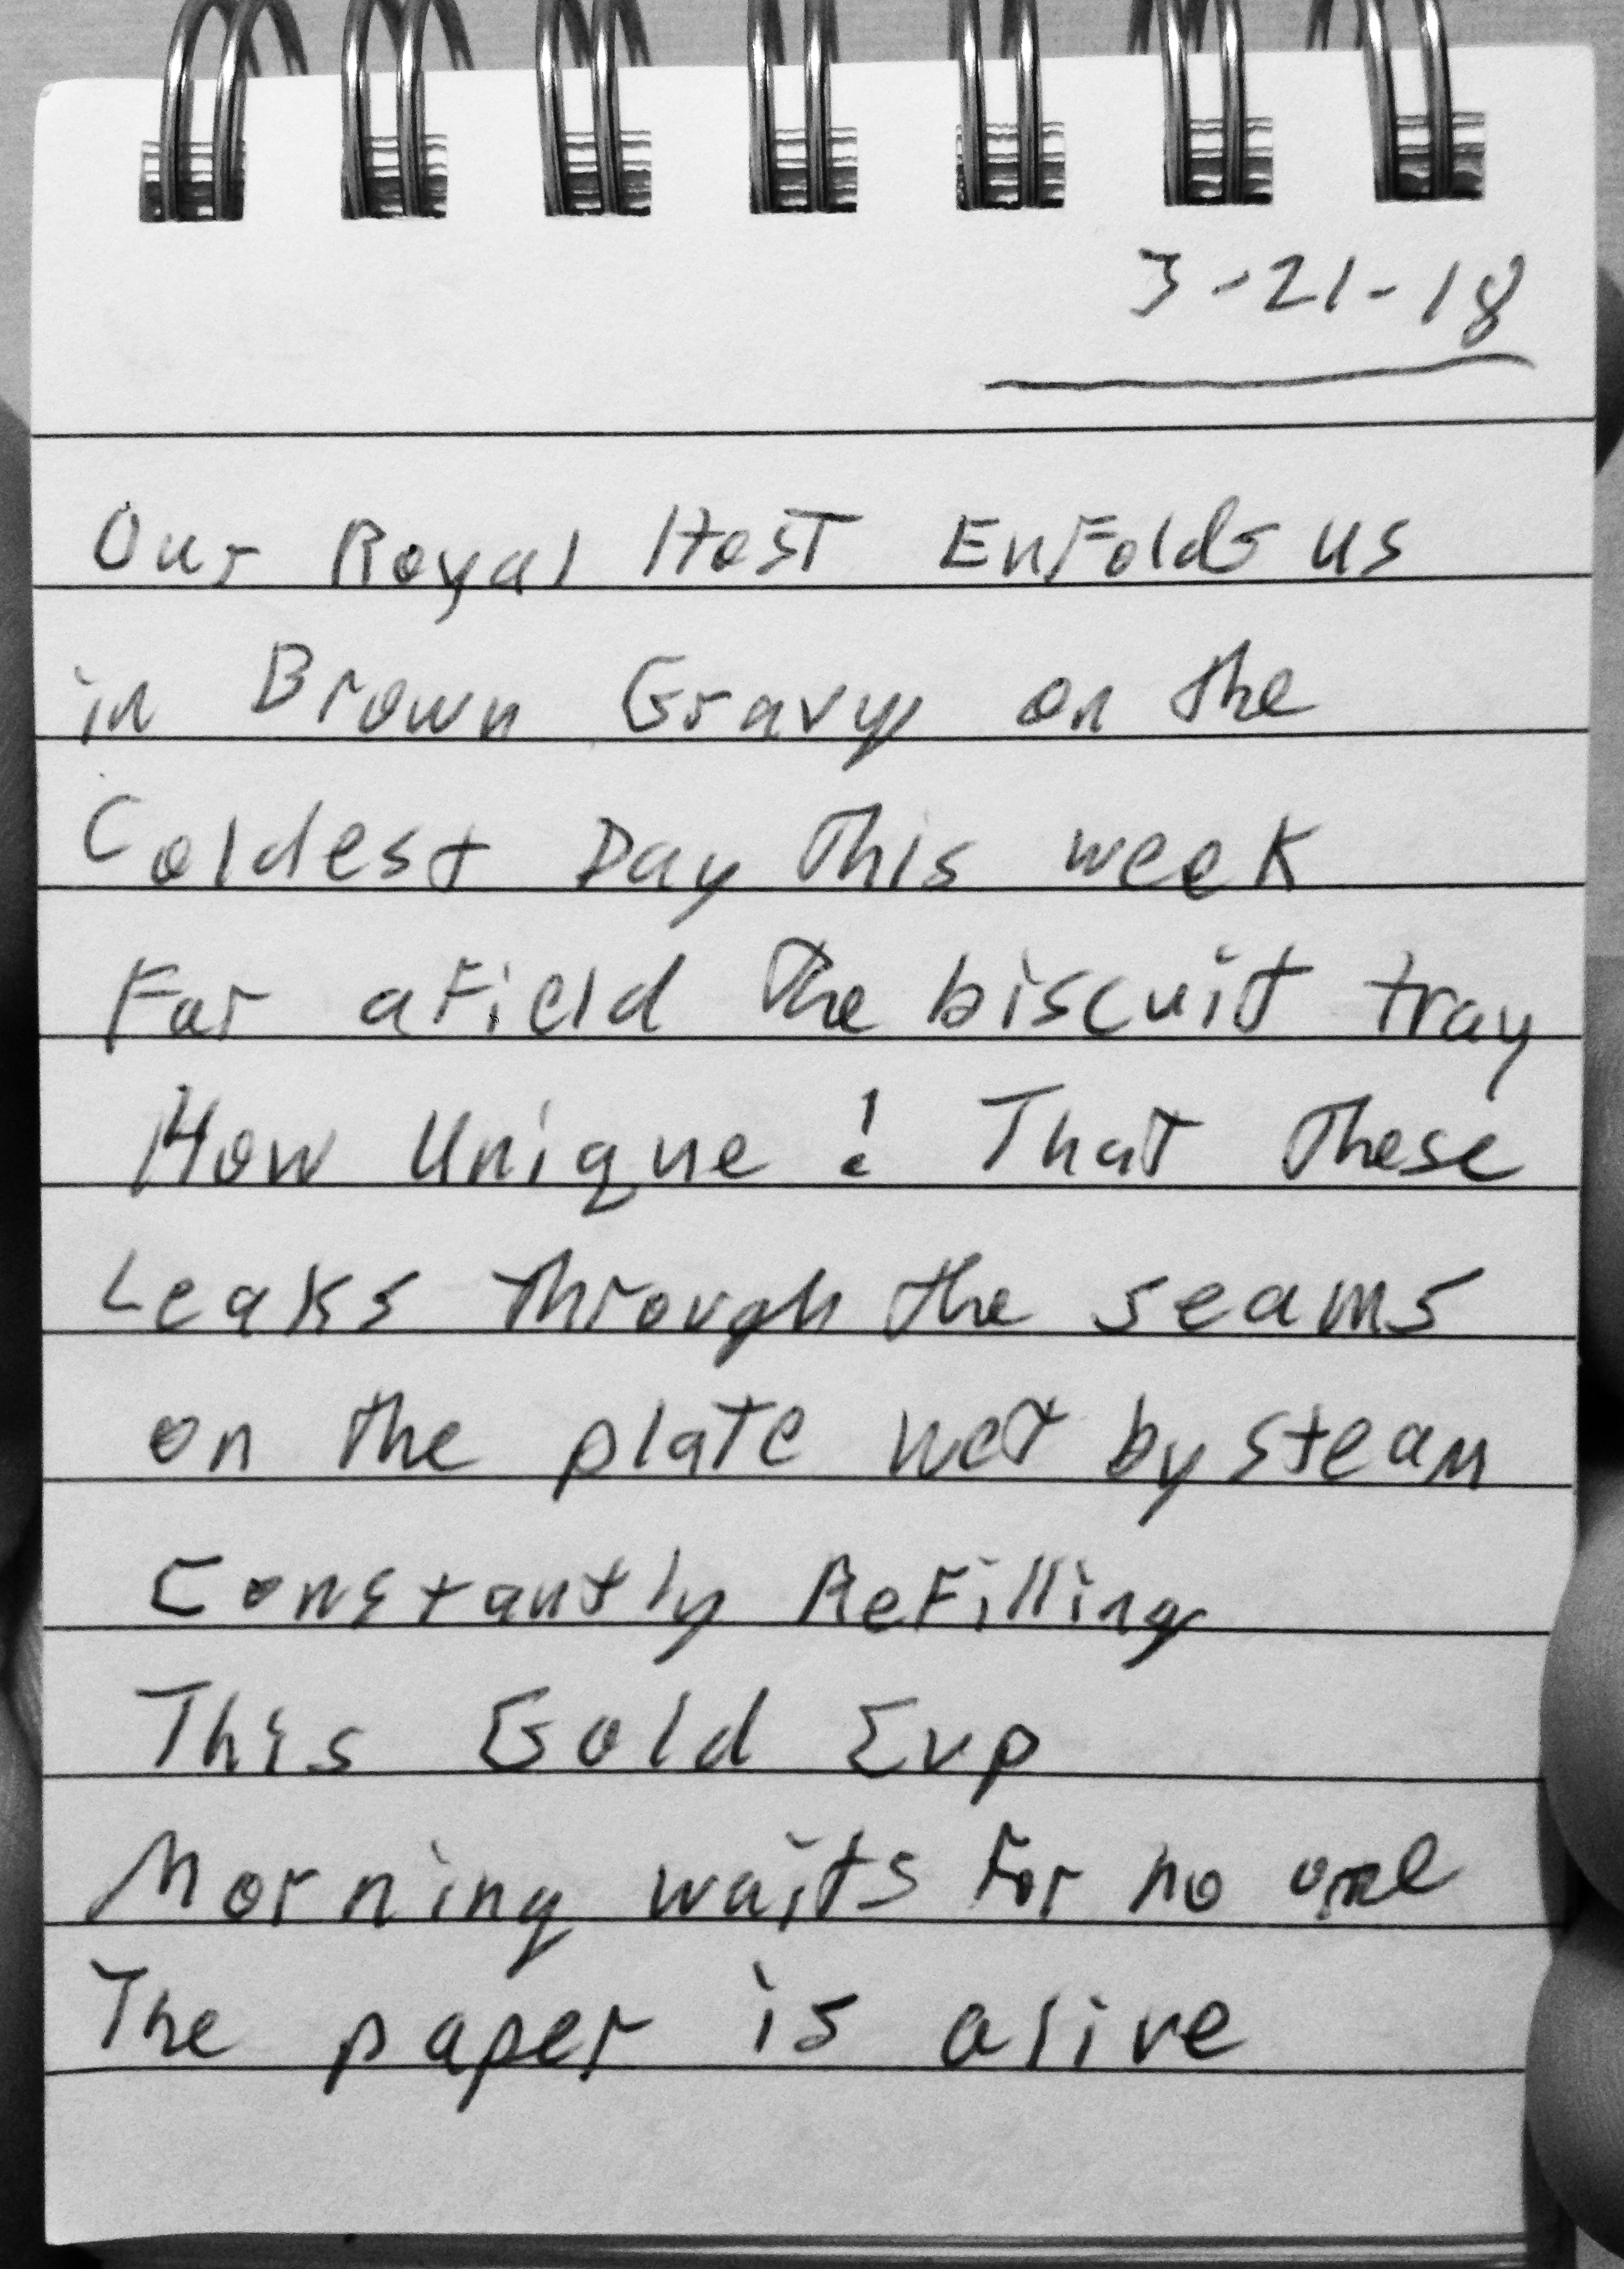 3-21-18
Our Royal Host Enfolds us
in Brown Gravy on the
Coldest Day This week
Far afield The biscuit tray
How Unique! That These
Leaks Through the seams
on the plate wet by steam
Constantly Refilling
This Gold Cup
Morning waits for no one
The paper is alive